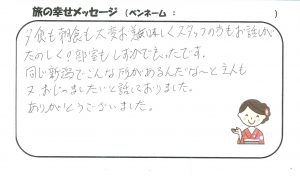 旅の幸せメッセージ (ペンネーム : )
夕食も朝食も大変お美味しくスタッフの方もお話しが
たのしく!!部屋もしずかでよったです。
同じ新潟でこんな所があるんだな〜と主人も
又おじゃましたいと話しておりました。
ありがとうございました。